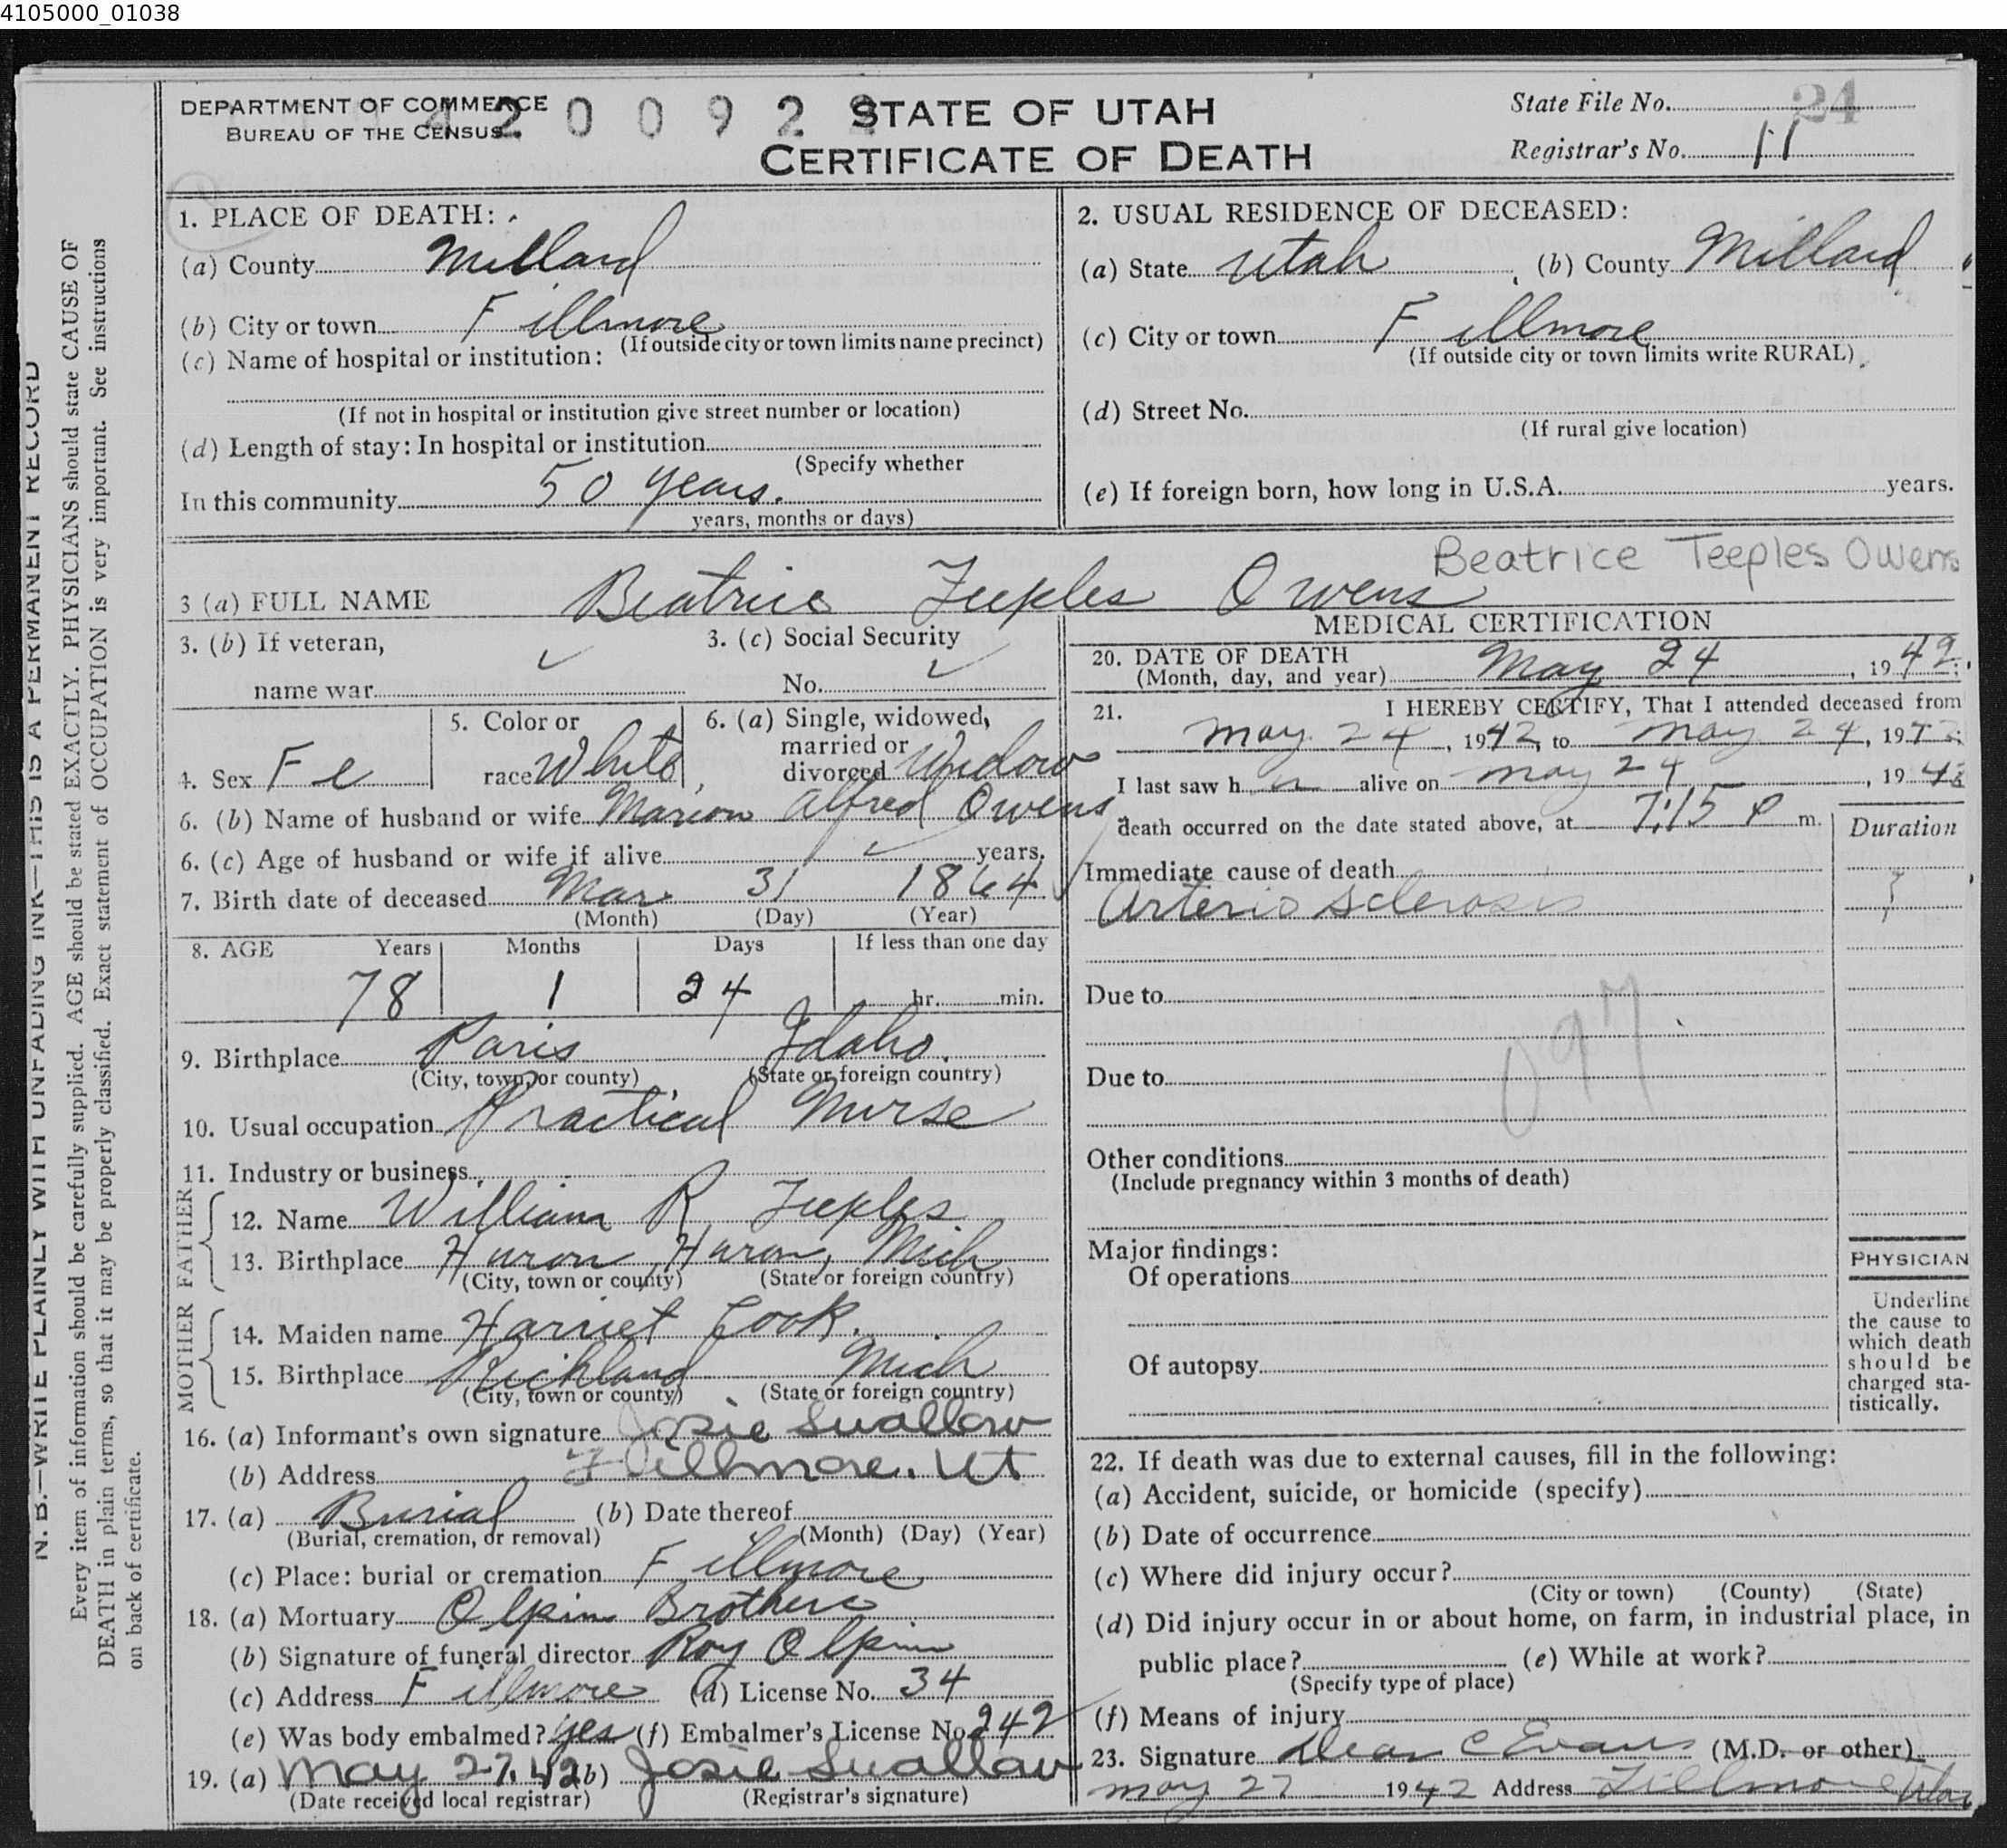 4105000_01038
DEPARTMENT OF COMMERCE
BUREAU OF THE CENSUS
4 2 0 0 9 2 2
STATE OF UTAH
CERTIFICATE OF DEATH
State File No. 24
Registrar's No. 11
1. PLACE OF DEATH:
(a) County Millard
(b) City or town Fillmore
(If outside city or town limits name precinct)
(c) Name of hospital or institution:
(If not in hospital or institution give street number or location)
(d) Length of stay: In hospital or institution
(Specify whether
In this community 50 years.
years, months or days)
2. USUAL RESIDENCE OF DECEASED:
(a) State Utah (b) County Millard
(c) City or town Fillmore
(If outside city or town limits write RURAL)
(d) Street No.
(If rural give location)
(e) If foreign born, how long in U.S.A. years.
Beatrice Teeples Owens
3 (a) FULL NAME Beatrice Teeples Owens
3. (b) If veteran,
name war
3. (c) Social Security
No.
4. Sex Fe
5. Color or
race White
6. (a) Single, widowed,
married or
divorced Widow
6. (b) Name of husband or wife Marion Alfred Owens
6. (c) Age of husband or wife if alive years.
7. Birth date of deceased Mar 31 1864
(Month) (Day) (Year)
8. AGE Years Months Days If less than one day
78 1 24 hr. min.
9. Birthplace Paris Idaho.
(City, town, or county) (State or foreign country)
10. Usual occupation Practical Nurse
11. Industry or business
FATHER
12. Name William R. Teeples
13. Birthplace Huron, Huron, Mich
(City, town or county) (State or foreign country)
MOTHER
14. Maiden name Harriet Cook.
15. Birthplace Richland Mich
(City, town or county) (State or foreign country)
16. (a) Informant's own signature Josie Swallow
(b) Address Fillmore. Ut
17. (a) Burial (b) Date thereof
(Burial, cremation, or removal) (Month) (Day) (Year)
(c) Place: burial or cremation Fillmore
18. (a) Mortuary Olpin Brothers
(b) Signature of funeral director Roy Olpin
(c) Address Fillmore (d) License No. 34
(e) Was body embalmed? yes (f) Embalmer's License No. 242
19. (a) May 27. 42 (b) Josie Swallow
(Date received local registrar) (Registrar's signature)
MEDICAL CERTIFICATION
20. DATE OF DEATH
(Month, day, and year) May 24, 1942.
21. I HEREBY CERTIFY, That I attended deceased from
May 24, 1942, to May 24, 1942;
I last saw h alive on May 24, 1942
death occurred on the date stated above, at 7:15 P m.
Duration
Immediate cause of death
Arterio sclerosis
Due to
097
Due to
Other conditions
(Include pregnancy within 3 months of death)
Major findings:
Of operations
Of autopsy
PHYSICIAN
Underline
the cause to
which death
should be
charged sta-
tistically.
22. If death was due to external causes, fill in the following:
(a) Accident, suicide, or homicide (specify)
(b) Date of occurrence
(c) Where did injury occur?
(City or town) (County) (State)
(d) Did injury occur in or about home, on farm, in industrial place, in
public place? (e) While at work?
(Specify type of place)
(f) Means of injury
23. Signature Dean C Evans (M.D. or other)
May 27 1942 Address Fillmore Utah
N. B.—WRITE PLAINLY WITH UNFADING INK—THIS IS A PERMANENT RECORD
Every item of information should be carefully supplied. AGE should be stated EXACTLY. PHYSICIANS should state CAUSE OF
DEATH in plain terms, so that it may be properly classified. Exact statement of OCCUPATION is very important. See instructions
on back of certificate.